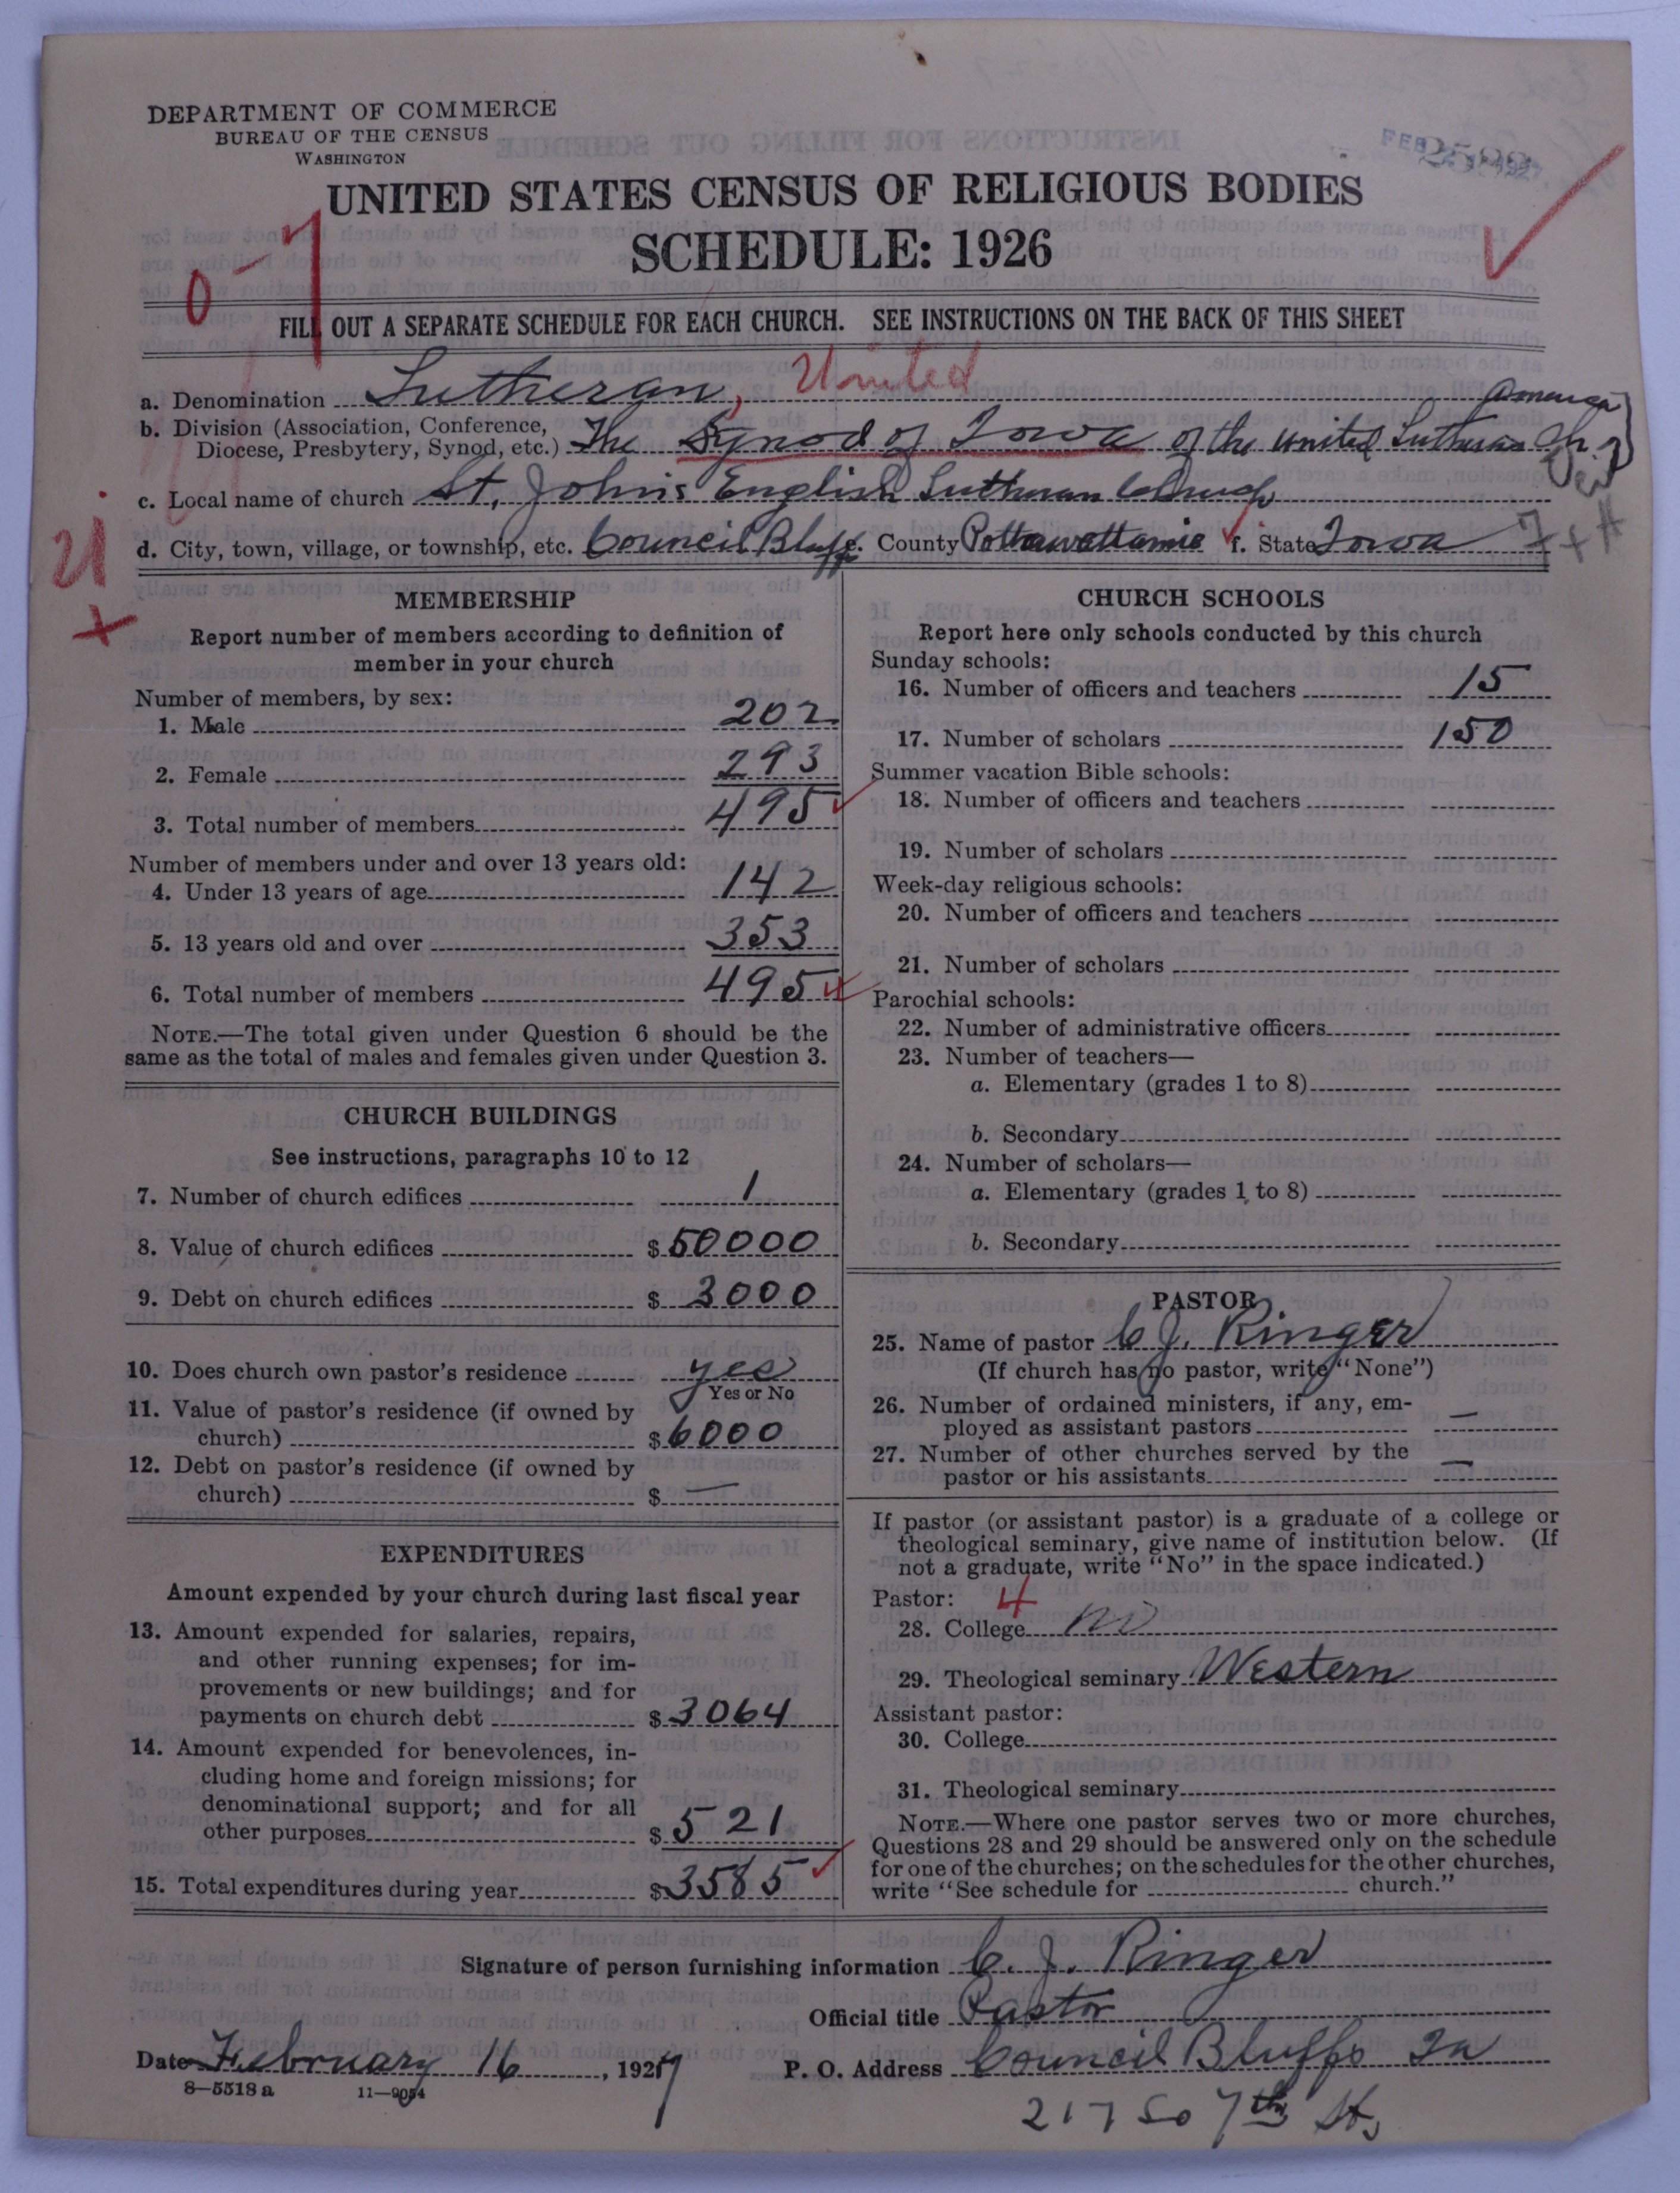 DEPARTMENT OF COMMERCE
BUREAU OF THE CENSUS
WASHINGTON
UNITED STATES CENSUS OF RELIGIOUS BODIES
SCHEDULE: 1926
0-1
FILL OUT A SEPARATE SCHEDULE FOR EACH CHURCH. SEE INSTRUCTIONS ON THE BACK OF THIS SHEET
a. Denomination Lutheran, United
b. Division (Association, Conference, Diocese, Presbytery, Synod, etc.) The Synod of Iowa of the united Lutheran Ch. America
c. Local name of church St. John's English Lutheran Church
d. City, town, village, or township, etc. Council Bluffs e. County Pottawattamie f. State Iowa
MEMBERSHIP
Report number of members according to definition of
member in your church
Number of members, by sex:
1. Male 202
2. Female 293
3. Total number of members 495
Number of members under and over 13 years old:
4. Under 13 years of age 142
5. 13 years old and over 353
6. Total number of members 495
NOTE.—The total given under Question 6 should be the
same as the total of males and females given under Question 3.
CHURCH BUILDINGS
See instructions, paragraphs 10 to 12
7. Number of church edifices 1
8. Value of church edifices $ 50000
9. Debt on church edifices $ 3000
10. Does church own pastor's residence yes
Yes or No
11. Value of pastor's residence (if owned by
church) $ 6000
12. Debt on pastor's residence (if owned by
church) $ —
EXPENDITURES
Amount expended by your church during last fiscal year
13. Amount expended for salaries, repairs,
and other running expenses; for im-
provements or new buildings; and for
payments on church debt $ 3064
14. Amount expended for benevolences, in-
cluding home and foreign missions; for
denominational support; and for all
other purposes $ 521
15. Total expenditures during year $ 3585
CHURCH SCHOOLS
Report here only schools conducted by this church
Sunday schools:
16. Number of officers and teachers 15
17. Number of scholars 150
Summer vacation Bible schools:
18. Number of officers and teachers
19. Number of scholars
Week-day religious schools:
20. Number of officers and teachers
21. Number of scholars
Parochial schools:
22. Number of administrative officers
23. Number of teachers—
a. Elementary (grades 1 to 8)
b. Secondary
24. Number of scholars—
a. Elementary (grades 1 to 8)
b. Secondary
PASTOR
25. Name of pastor C J. Ringer
(If church has no pastor, write "None")
26. Number of ordained ministers, if any, em-
ployed as assistant pastors —
27. Number of other churches served by the
pastor or his assistants —
If pastor (or assistant pastor) is a graduate of a college or
theological seminary, give name of institution below. (If
not a graduate, write "No" in the space indicated.)
Pastor: 4
28. College no
29. Theological seminary Western
Assistant pastor:
30. College
31. Theological seminary
NOTE.—Where one pastor serves two or more churches,
Questions 28 and 29 should be answered only on the schedule
for one of the churches; on the schedules for the other churches,
write "See schedule for church."
Signature of person furnishing information C. J. Ringer
Official title Pastor
Date February 16, 1927 P. O. Address Council Bluffs Ia
8—5518 a 11—9054
217 So 7th St,